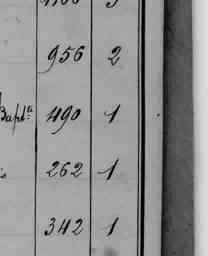 956 2
Bapta 490 1
262 1
342 1